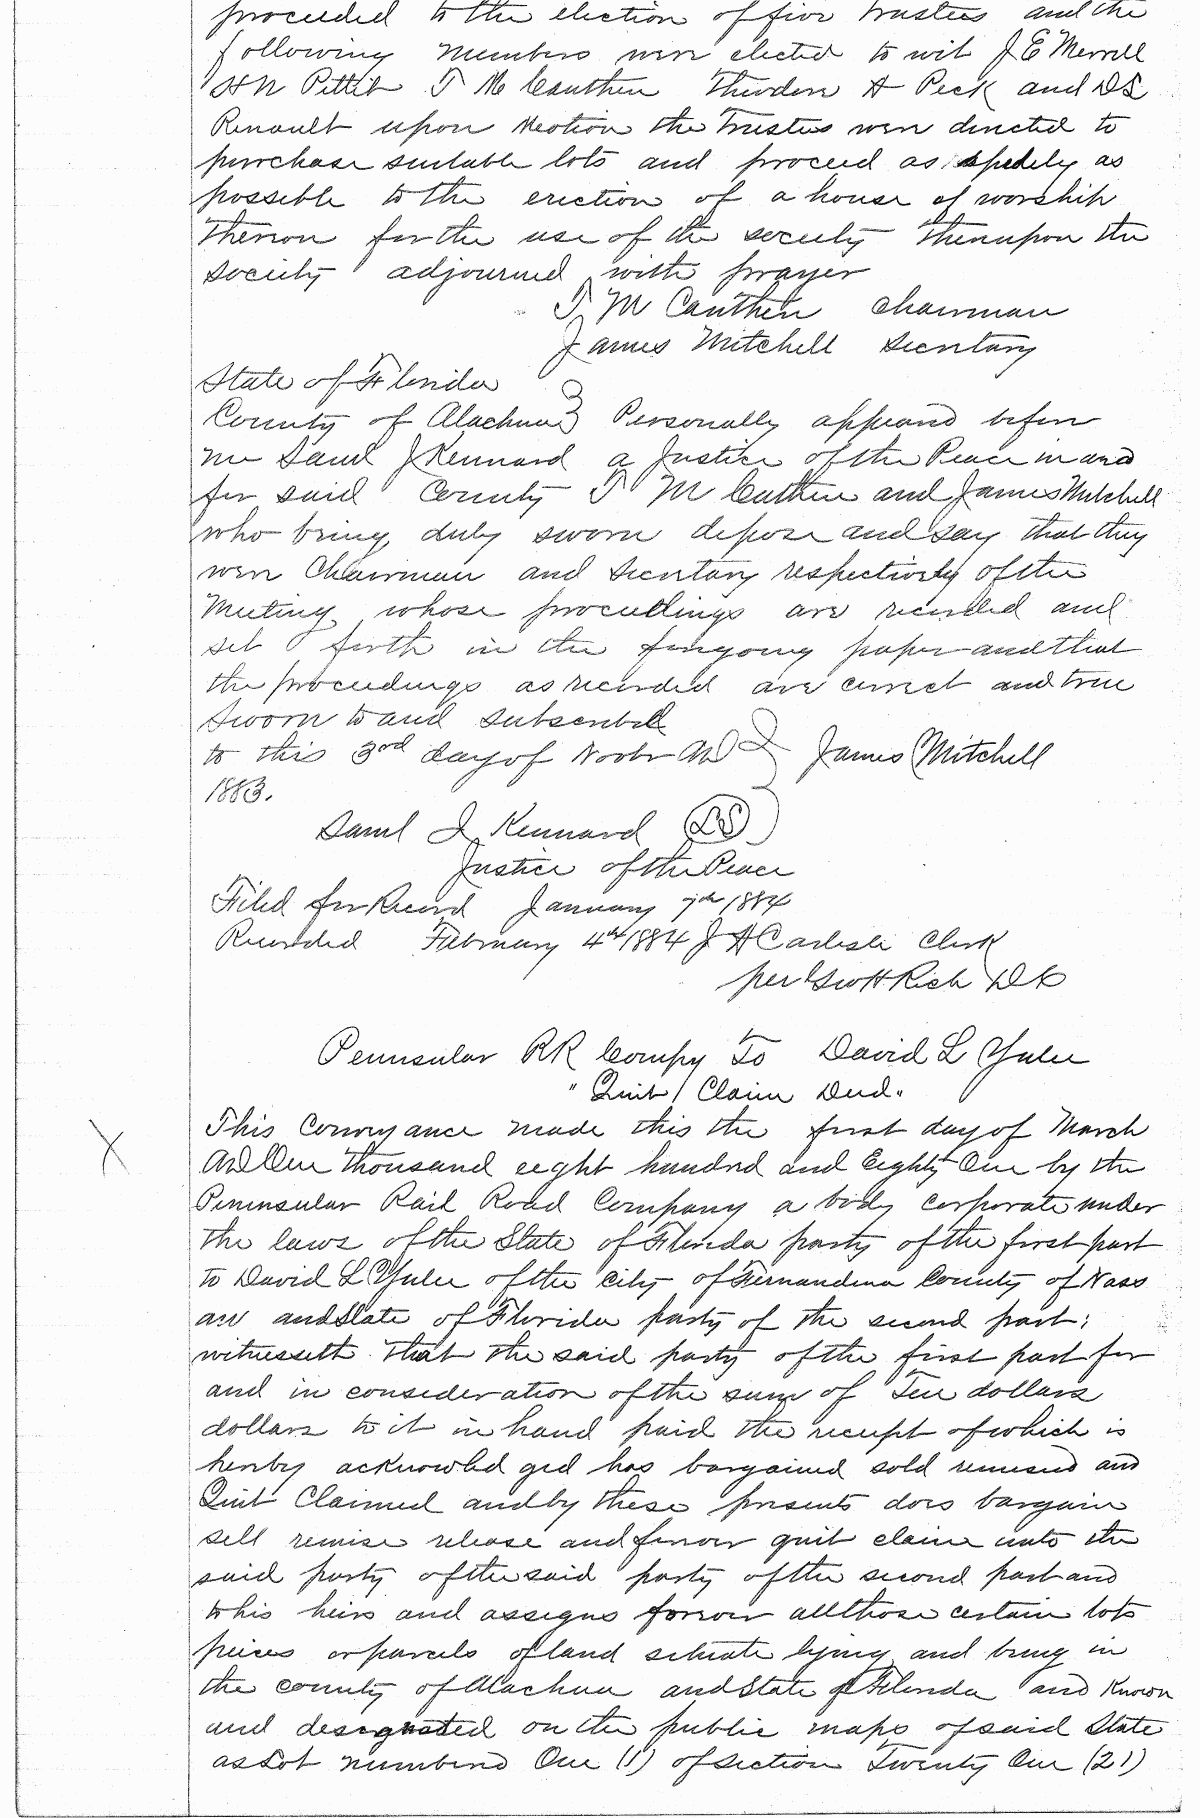 proceeded to the election of five Trustees and the
following members were elected to wit J E Merrell
H N Pettit T M Cauthen Theodore A Peck and D S
Renault upon Motion the Trustees were directed to
purchase suitable lots and proceed as spedely as
possible to the erection of a house of worship
Thereon for the use of the society Thereupon the
society adjourned with prayer
T M Cauthen Chairman
James Mitchell Secretary
State of Florida
County of Alachua } Personally appeared before
me Saml J Kennard a Justice of the Peace in and
for said County T M Cauthen and James Mitchell
who being duly sworn depose and say that they
were Chairman and Secretary respectively of the
Meeting whose proceedings are recorded and
set forth in the foregoing paper and that
the proceedings as recorded are correct and true
Sworn to and subscribed
to this 3rd day of Novbr AD } James Mitchell
1883.
Saml J Kennard (LS)
Justice of the Peace
Filed for Record January 7th 1884
Recorded February 4th 1884 J H Carlisle Clerk
per Rich DC
Peninsular RR Compy To David L Yulee
"Quit Claim Deed"
This Conveyance made this the first day of March
AD One Thousand eight hundred and Eighty One by the
Peninsular Rail Road Company a body corporate under
the laws of the State of Florida party of the first part
to David L Yulee of the city of Fernandina County of Nass
au and State of Florida party of the second part;
witnesseth That the said party of the first part for
and in consideration of the sum of Ten dollars
dollars to it in hand paid the receipt of which is
hereby acknowled ged has bargained sold remised and
Quit Claimed and by these presents does bargain
sell remise release and forever quit claim unto the
said party of the said party of the second part and
to his heirs and assigns forever all those certain lots
peices or parcels of land situate lying and being in
the county of Alachua and State of Florida and Known
and designated on the public maps of said State
as Lot numbered One (1) of section Twenty One (21)